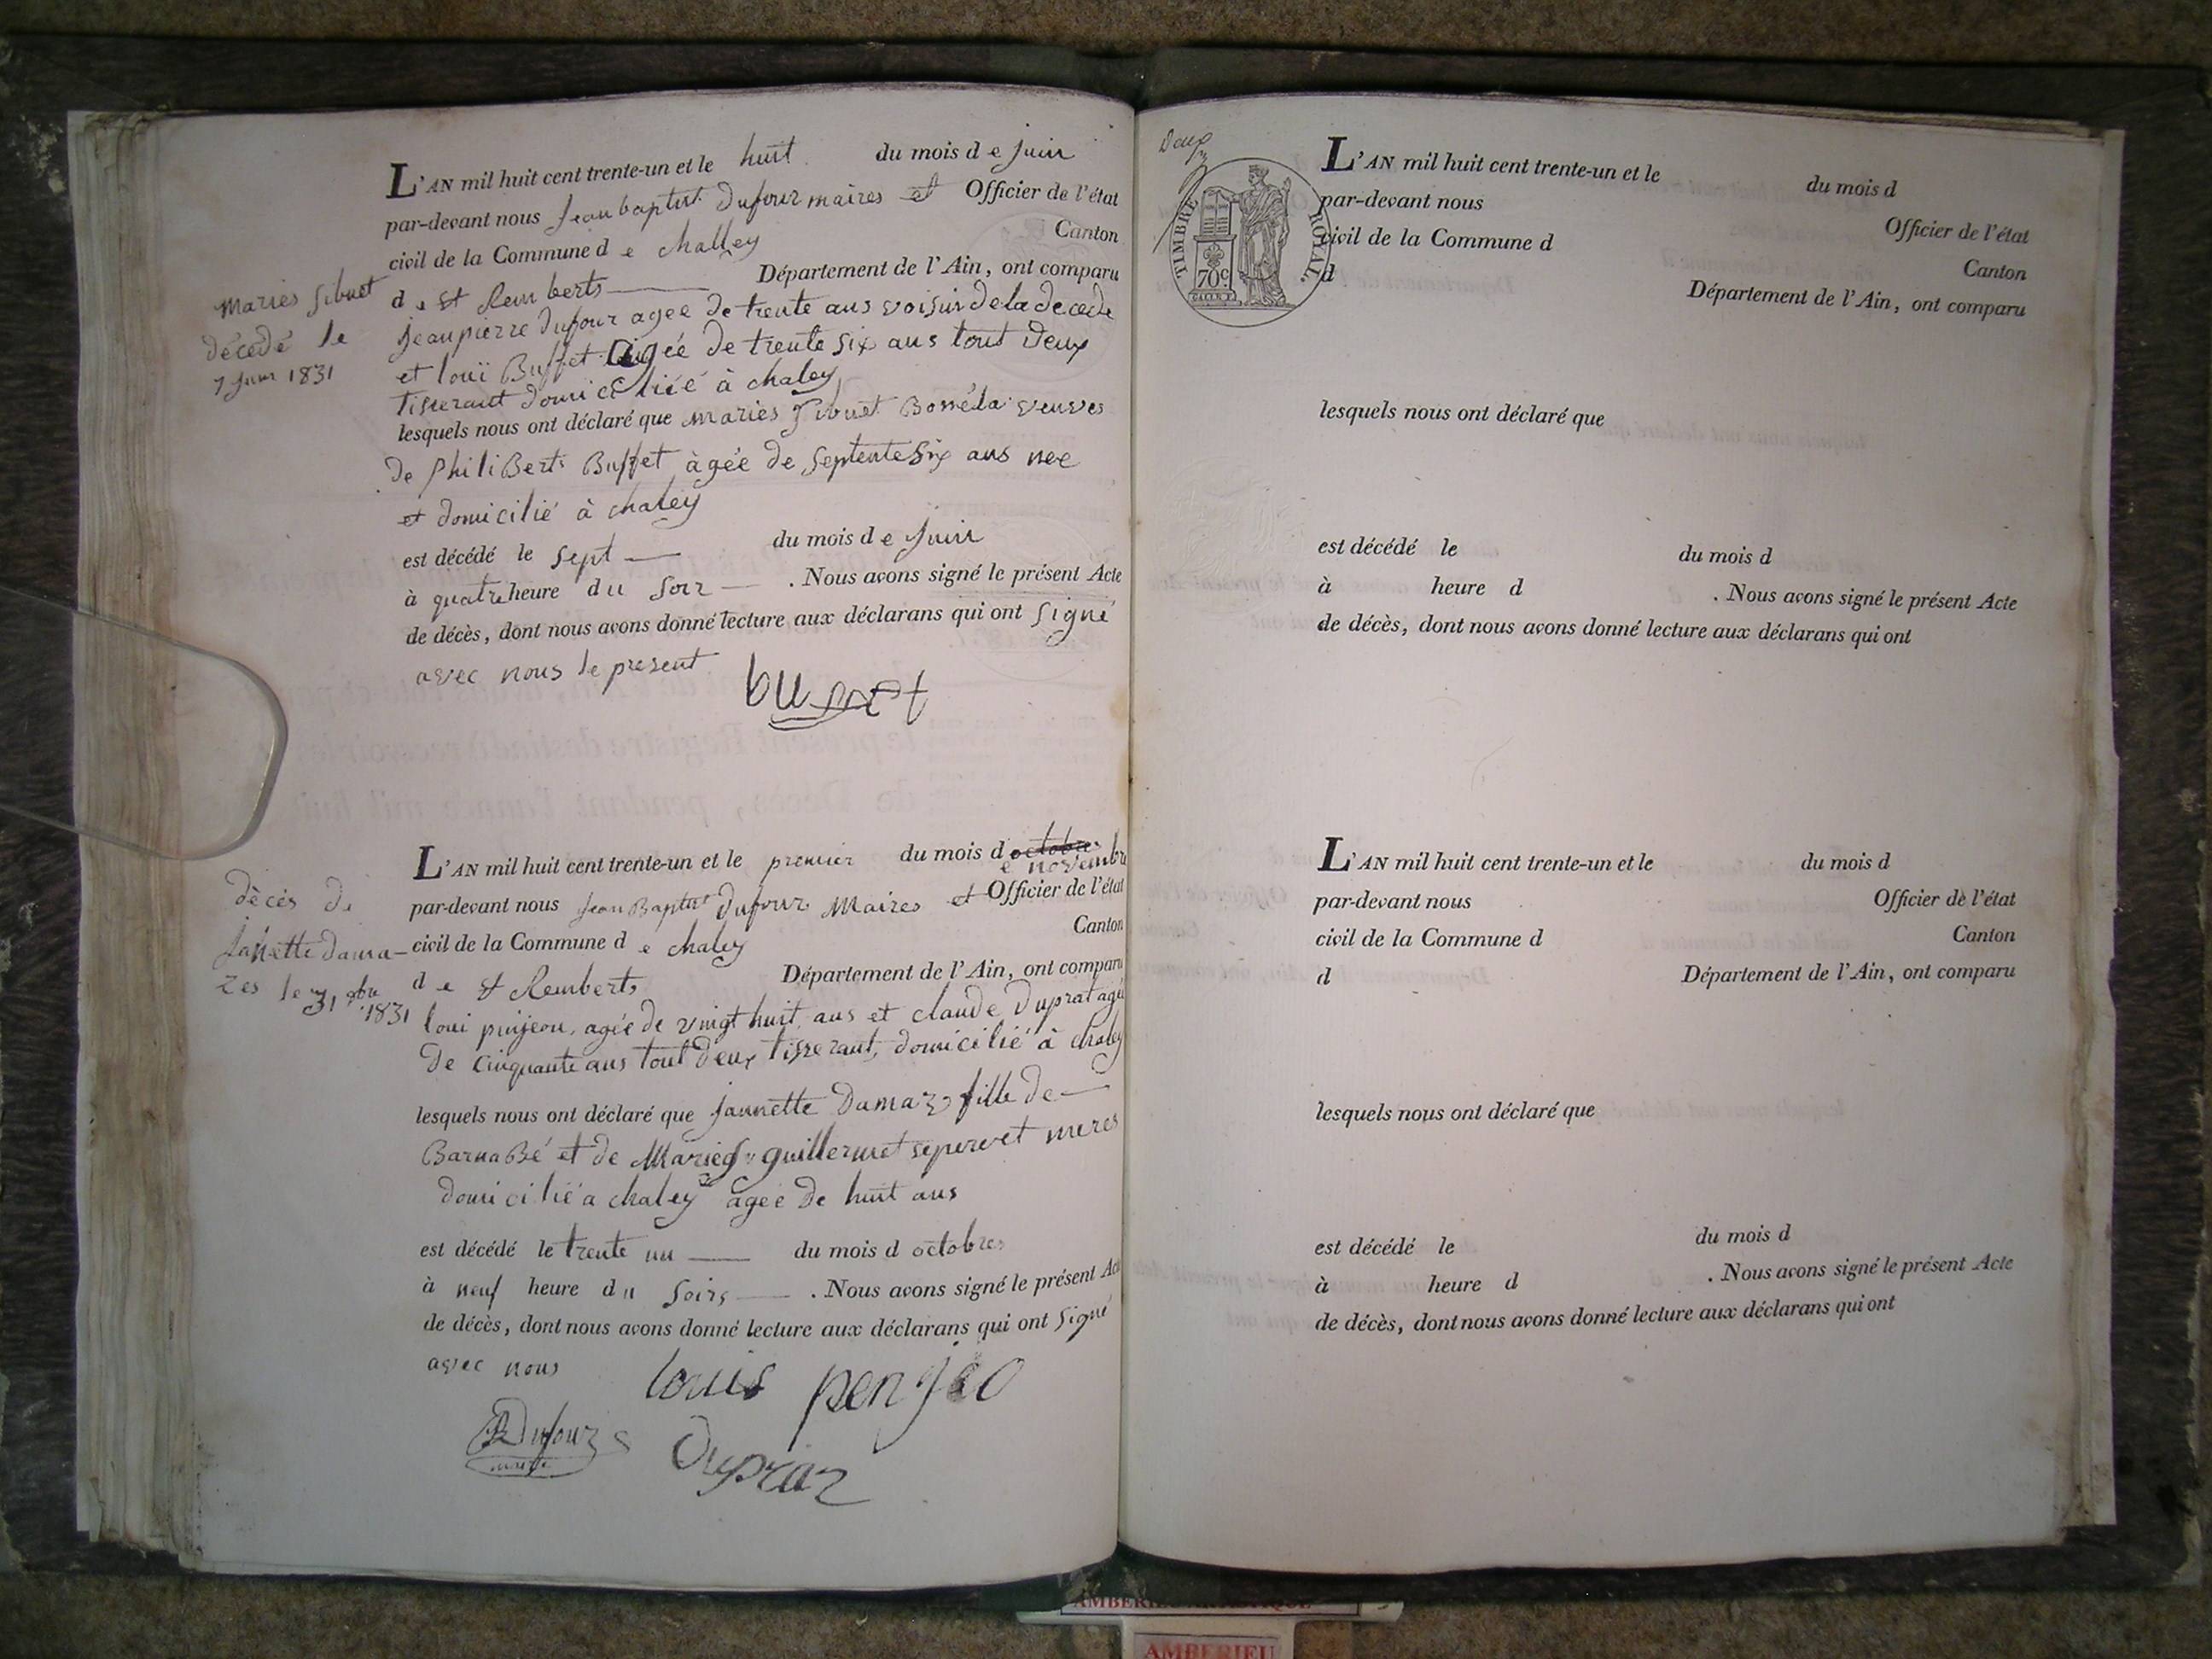 L'AN mil huit cent trente-un et le huit du mois d e juin
par-devant nous jean baptist dufour maires et Officier de l'état
civil de la Commune d e challey Canton
d e st Remberts Département de l'Ain, ont comparu
jeanpierre dufour agee de trente ans voisin de la decede
et louï Buffet agée de trente six ans tout deux
tisserant domicilié à chaley
lesquels nous ont déclaré que maries Sibuet veuves
de PhiliBert Buffet àgée de septente six ans nee
et domicilié à chaley
est décédé le sept du mois d e juin
à quatre heure du soir . Nous avons signé le présent Acte
de décès, dont nous avons donné lecture aux déclarans qui ont signé
avec nous le present
buffet
maries Sibuet
décedé le
7 juin 1831
L'AN mil huit cent trente-un et le premier du mois d octobre
e novembre
par-devant nous jean Baptist dufour Maires et Officier de l'état
civil de la Commune d e chaley Canton
d e st Remberts Département de l'Ain, ont comparu
loui pinjeon, agée de vingt huit ans et claude Duprat agée
de cinquante ans tout deux tisserant, domicilié à chaley
lesquels nous ont déclaré que jannette Damaz fille de
BarnaBé et de Maries guillermet meres
domicilié a chaley agée de huit ans
est décédé le trente un du mois d octobres
à neuf heure du soirs . Nous avons signé le présent Acte
de décès, dont nous avons donné lecture aux déclarans qui ont signé
avec nous
louis penjeo
Dufour
maire
Dupraz
dècès de
janette dama-
zes le 31 8bre
1831
TIMBRE ROYAL
70c
L'AN mil huit cent trente-un et le du mois d
par-devant nous Officier de l'état
civil de la Commune d Canton
d Département de l'Ain, ont comparu
lesquels nous ont déclaré que
est décédé le du mois d
à heure d . Nous avons signé le présent Acte
de décès, dont nous avons donné lecture aux déclarans qui ont
L'AN mil huit cent trente-un et le du mois d
par-devant nous Officier de l'état
civil de la Commune d Canton
d Département de l'Ain, ont comparu
lesquels nous ont déclaré que
est décédé le du mois d
à heure d . Nous avons signé le présent Acte
de décès, dont nous avons donné lecture aux déclarans qui ont
AMBERIEU